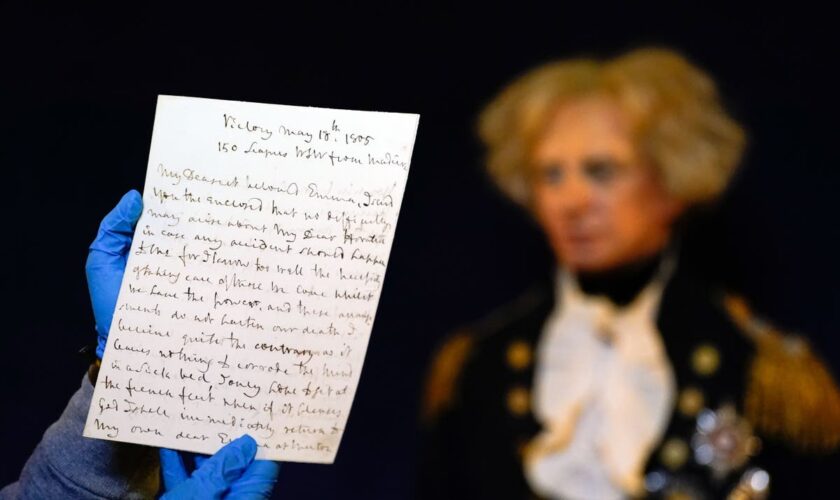 Victory May 18th. 1805
150 Leagues WSW from Madeira
My Dearest beloved Emma, I send
You the enclosed that no difficulty
may arise about My Dear Horatia
in case any accident should happen
to me for I know too well the necessity
of taking care of those we Love whilst
we have the power, and these arrange
ments do not hasten our death I
believe quite the contrary as it
leaves nothing to corrode the mind
in a sick bed, I only hope to get at
the french fleet when if it pleases
God I shall immediately return to
My own dear Emma at Merton